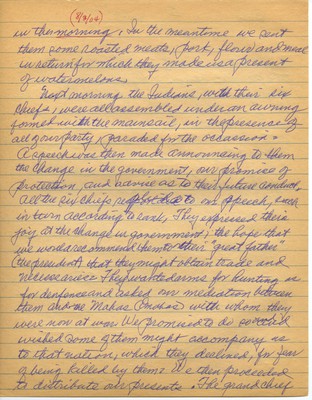 (8/3/04)
in the morning. In the meantime we sent
them some roasted meats, pork, flour and meal
in return for which they made us a present
of watermelons.
Next morning the Indians, with their six
chiefs, were all assembled under an awning
formed with the mainsail, in the presence of
all our party, paraded for the occassion.
A speech was then made announcing to them
the change in the government, our promise of
protection, and advice as to their future conduct.
All the six chiefs replied to our speech, each
in turn according to rank. They expressed their
joy at the change in government; the hope that
we would recommend them to their "great father"
(the president) that they might obtain trade and
necessaries. They wanted arms for hunting as
for defence and asked our mediation between
them and the Mahas with whom they
were now at war. We promised to do so and
wished some of them might accompany us
to that nation, which they declined, for fear
of being killed by them. We then proceeded
to distribute our presents. The grand chief